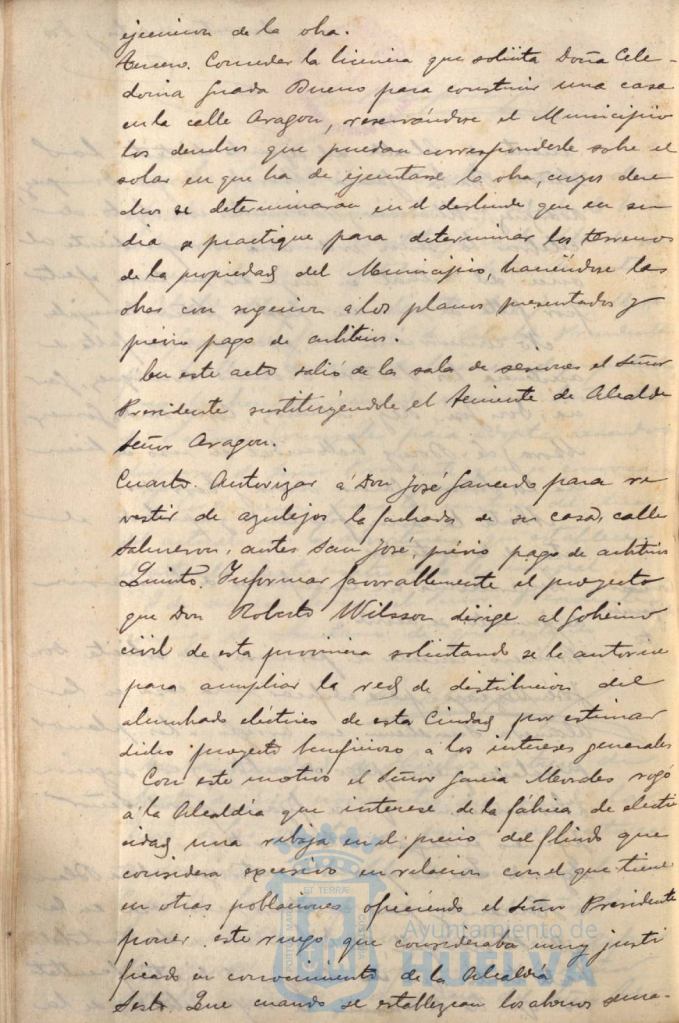 ejecucion de la obra.
Tercero. Conceder la licencia que solicita Doña Cele-
donia Guada Bueno para construir una casa
en la calle Aragon, reservándose el Municipio
los derechos que puedan corresponderle sobre el
solar en que ha de ejecutarse la obra, cuyos dere
chos se determinaran en el deslinde que en su
dia se practique para determinar los terrenos
de la propiedad del Municipio, haciéndose las
obras con sugecion a los planos presentados y
previo pago de arbitrios.
En este acto salió de la sala de sesiones el Señor
Presidente sustituyéndole el Teniente de Alcalde
Señor Aragon.
Cuarto. Autorizar á Don José Saucedo para re
vestir de azulejos la fachada de su casa, calle
Salmeron, antes San José, previo pago de arbitrios
Quinto. Informar favorablemente el proyecto
que Don Roberto Wilsson dirige al Gobierno
civil de esta provincia solicitando se le autorice
para ampliar la red de distribucion del
alumbrado eléctrico de esta Ciudad por estimar
dicho proyecto beneficioso a los intereses generales
Con este motivo el Señor Garcia Morales rogó
á la Alcaldía que interese de la fábrica de electri
cidad una rebaja en el precio del fluido que
considera excesivo en relacion con el que tiene
en otras poblaciones ofreciendo el Señor Presidente
poner este ruego que consideraba muy justi
ficado en conocimiento de la Alcaldía
Sesto. Que cuando se establezcan los abonos sema-
Ayuntamiento de
HUELVA